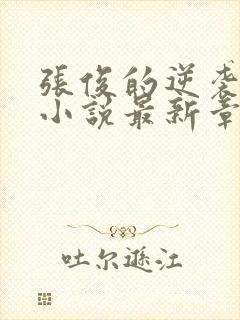 張俊的逆袭
小說最新章
吐尔遜江